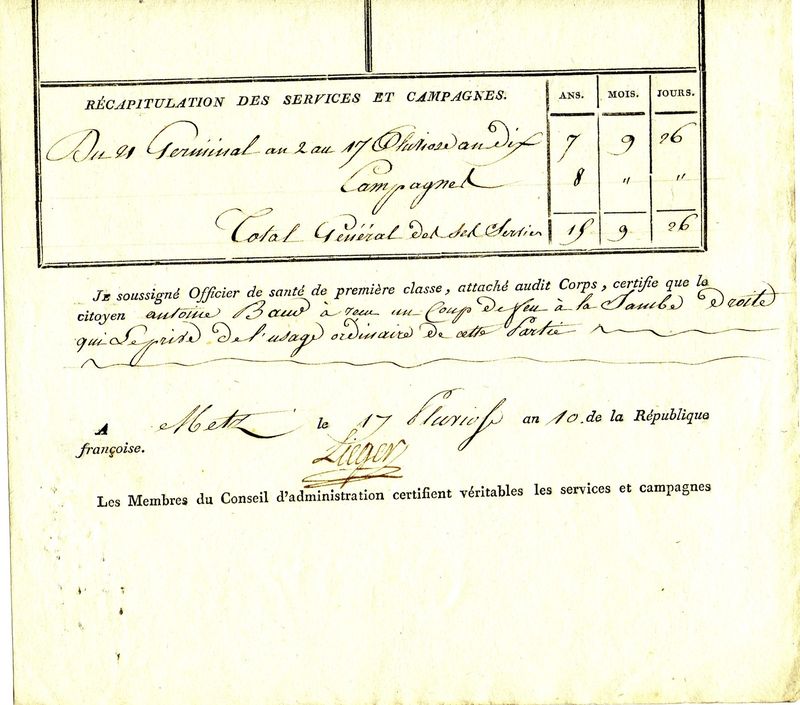 RÉCAPITULATION DES SERVICES ET CAMPAGNES. ANS. MOIS. JOURS.
Du 21 Germinal an 2 au 17 Pluviose an dix 7 9 26
Campagnes 8 " "
Total Général des ses Services 15 9 26
JE soussigné Officier de santé de première classe, attaché audit Corps, certifie que le
citoyen antoine à reçu un Coup de feu à la Jambe droite
qui Le prive de l'usage ordinaire de cette Partie
A Metz le 17 Pluviose an 10. de la République
françoise.
Lieger
Les Membres du Conseil d'administration certifient véritables les services et campagnes